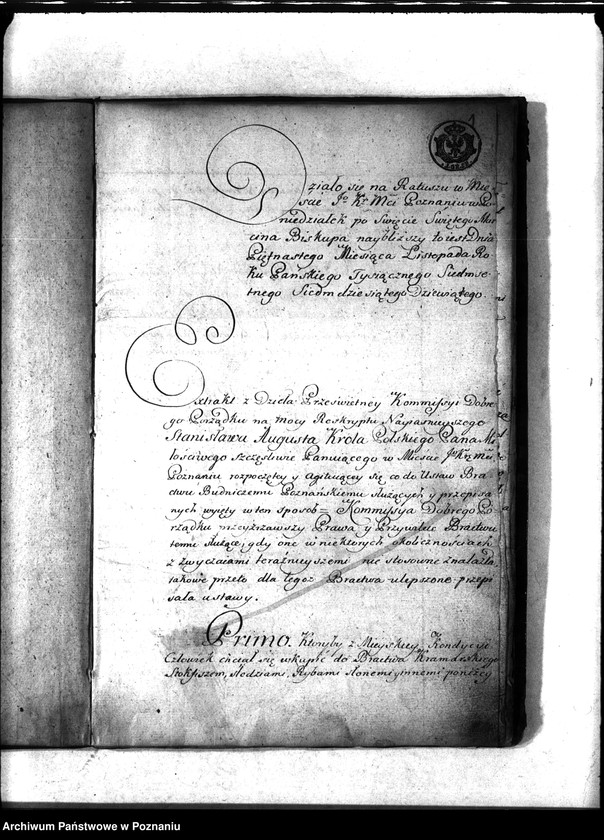 1
Działo się na Ratuszu w Mie-
scie Jo Kr Mci Poznaniu w Po-
niedziałek po Swięcie Swiętego Mar-
cina Biskupa naybliższy to iest Dnia
Piętnastego Miesiąca Listopada Ro-
ku Pańskiego Tysiącznego Siedmse-
tnego Siedmdziesiątego Dziewiątego.
Extrakt z Dzieła Prześwietney Kommissyi Dobre-
go Porządku na mocy Reskryptu Nayiasnieyszego
Stanisława Augusta Króla Polskiego Pana Mi-
łościwego Szczęśliwie Panuiącego w Miescie Jo Kr Mci
Poznaniu rozpoczęty y Agituiący się co do Ustaw Bra-
ctwu Budniczemu Poznańskiemu służących y przepisa-
nych wyięty w ten sposob = Kommissya Dobrego Po-
rządku przeyrzawszy Prawa y Przywileie Bractwu
temu służące, gdy one w niektorych okolicznosciach
z zwyczaiami teraznieyszemi nie stosowne znalazła
takowe przeto dla tegoż Bractwa ulepszone przepi-
sała ustawy.
Primo. Ktoryby z Mieyskiey Kondycyi
Człowiek chciał się wkupić do Bractwa Kramarskiego
Stokfiszem, sledziami, Rybami słonemi ynnemi poniżey
Archiwum Państwowe w Poznaniu